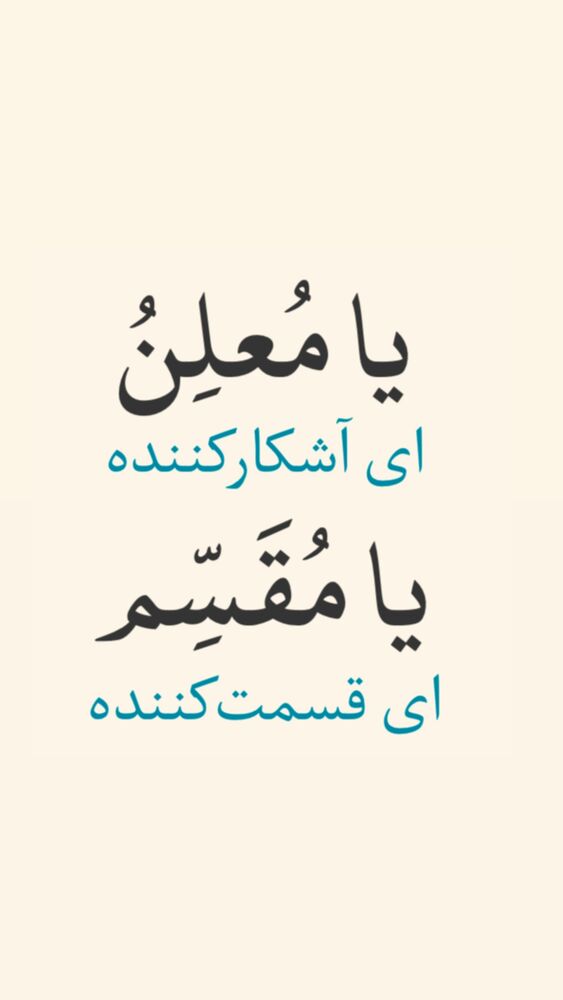 يا مُعلِنُ
ای آشکارکننده
يا مُقَسِّم
ای قسمت‌کننده